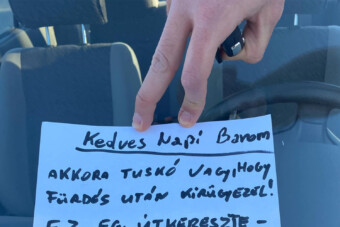 Kedves Napi Barom
AKKORA TUSKÓ VAGY, HOGY
FÜRDÉS UTÁN KIRÜGYEZEL!
EZ EGY ÚTKERESZTE-